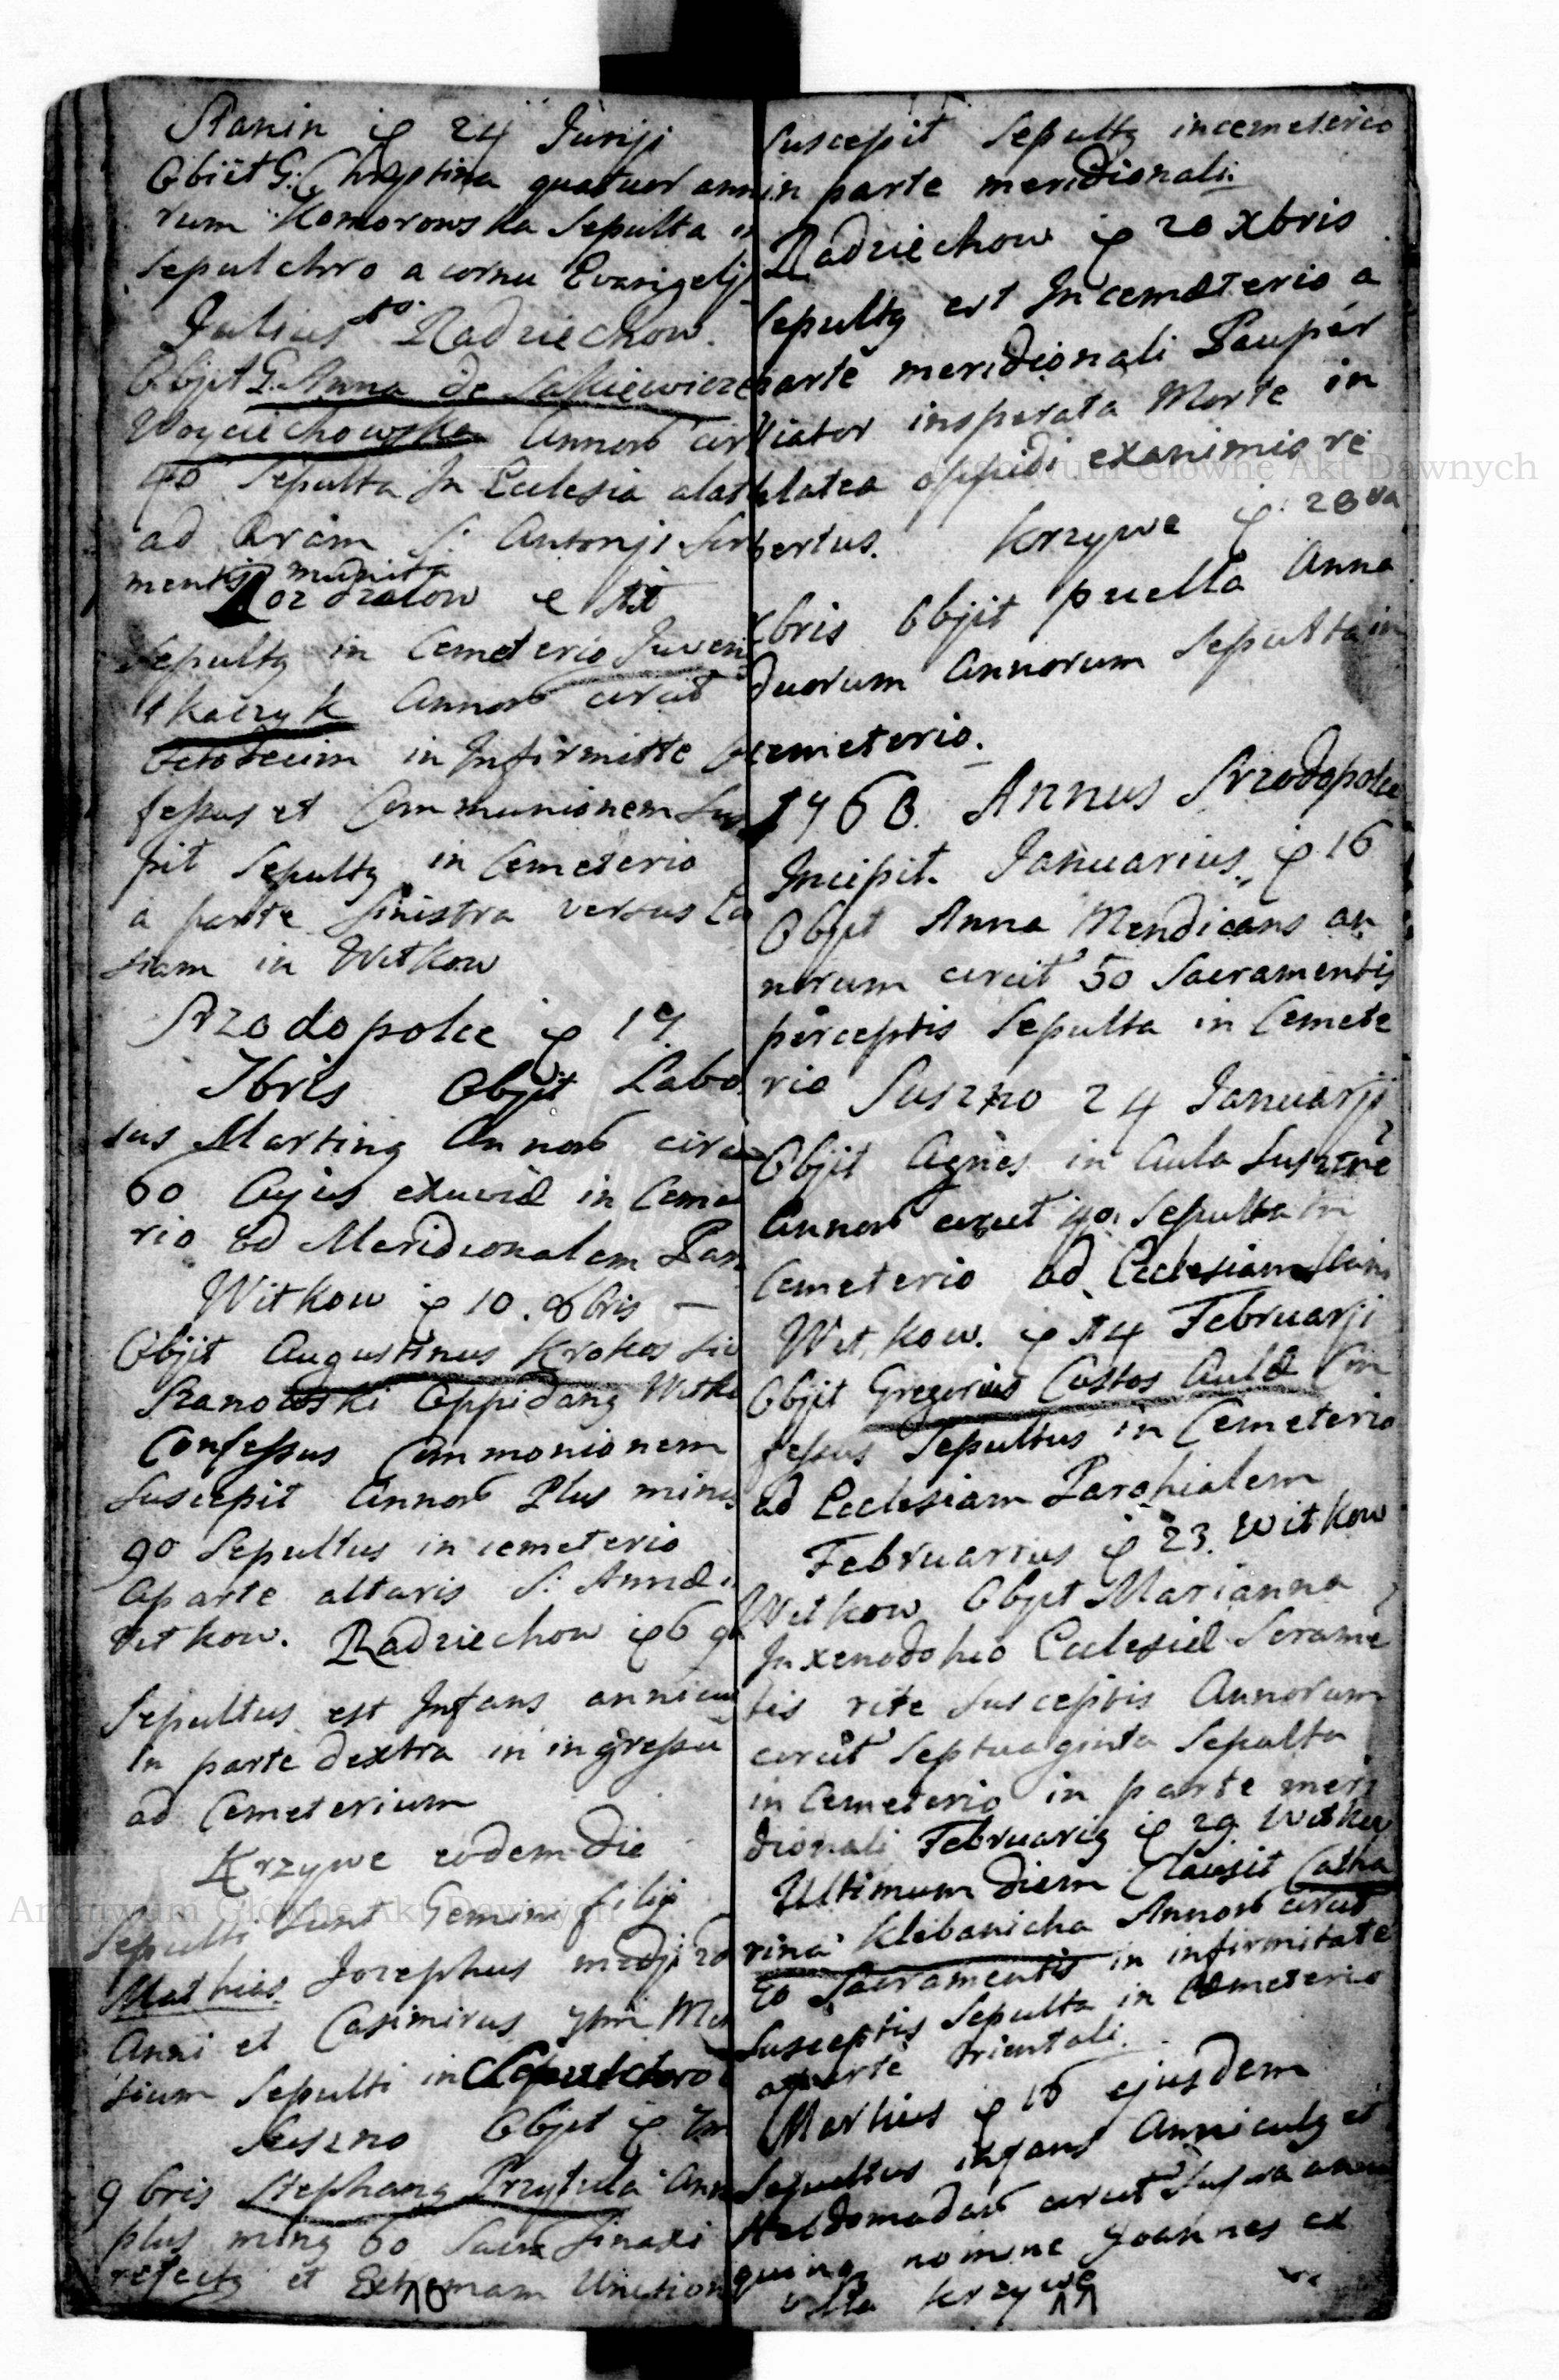 Stanin 24 Junji
Obiit G: Chryptina quatuor ann
rum Komorowska Sepulta in
Sepulchro a cornu Evangelij
Julius Radziechow.
Objit G. Anna de
Woyciechowska Annorb cir
40 Sepulta In Ecclesia
ad Aram S: Antonji
mentis munita

Sepultg in Cemeterio
Tkaczyk Annorb circit
Octodecim in Infirmitte
fessus et Communionem Sus
pit Sepultg in Cemeterio
a parte sinistra versus
siam in Witkow
Srzodopolce 17
7bris Objit Labo
sus Marting Annorb circi
60 Cujus exuviæ in Ceme
rio ad Meridionalem Par
Witkow 10. 8bris —
Objit Augustinus Krokos
Oppidang Witko
Confessus Communionem
Suscepit Annorb Plus ming
90 Sepultus in cemeterio
a parte altaris S: Annæ
Vitkow. Radziechow 6 9
Sepultus est Infans
In parte dextra in ingressu
ad Cemeterium
Krzywe eodem die
Sepulti sunt Gemini filij
Mathias Jozephus medji
Anni et Casimirus
sium Sepulti in Sepulchro
Suszno Objit
9bris Stephang Przytula Ann
plus ming 60 Sacra Sinaxi
refectg et Extremam Unction
10
Suscepit Sepultg in cemeterio
in parte meridionali.
Radziechow 20 Xbris
Sepultg est In cemæterio a
parte meridionali Pauper
Viator insperata Morte in
platea oppidi exanimis re
pertus. Krzywe 28va
Xbris Objit puella Anna
duorum Annorum Sepulta in
cemeterio.
1768. Annus Srzodopolce
Incipit. Januarius 16
Objit Anna Mendicans an
norum circit 50 Sacramentis
perceptis Sepulta in Cemete
rio Suszno 24 Januarji
Objit Agnes in Aula
Annorb circit 40. Sepulta in
Cemeterio ad Ecclesiam
Witkow. 14 Februarji
Objit Gregorius Custos Aulæ Con
fessus Sepultus in Cemeterio
ad Ecclesiam Parohialem
Februarius 23. Witkow
Witkow Objit Marianna
In xenodohio Ecclesiæ Scrame
tis rite Susceptis Annorum
circit Septuaginta Sepulta
in Cemeterio in parte meri
dionali Februarig 29 Witkow
Ultimum diem Clausit Catha
rina Klebanicha Annorb circit
Sacramentis in infirmitate
Susceptis Sepulta in Cemeterio
a parte Orientali.
Martius 16 ejusdem
Sepultus infans Anniculg et
Hebdomadarb circit Supra
quing nomine Joannes ex
villa Krzywe
11
Archiwum Główne Akt Dawnych
Archiwum Główne Akt Dawnych